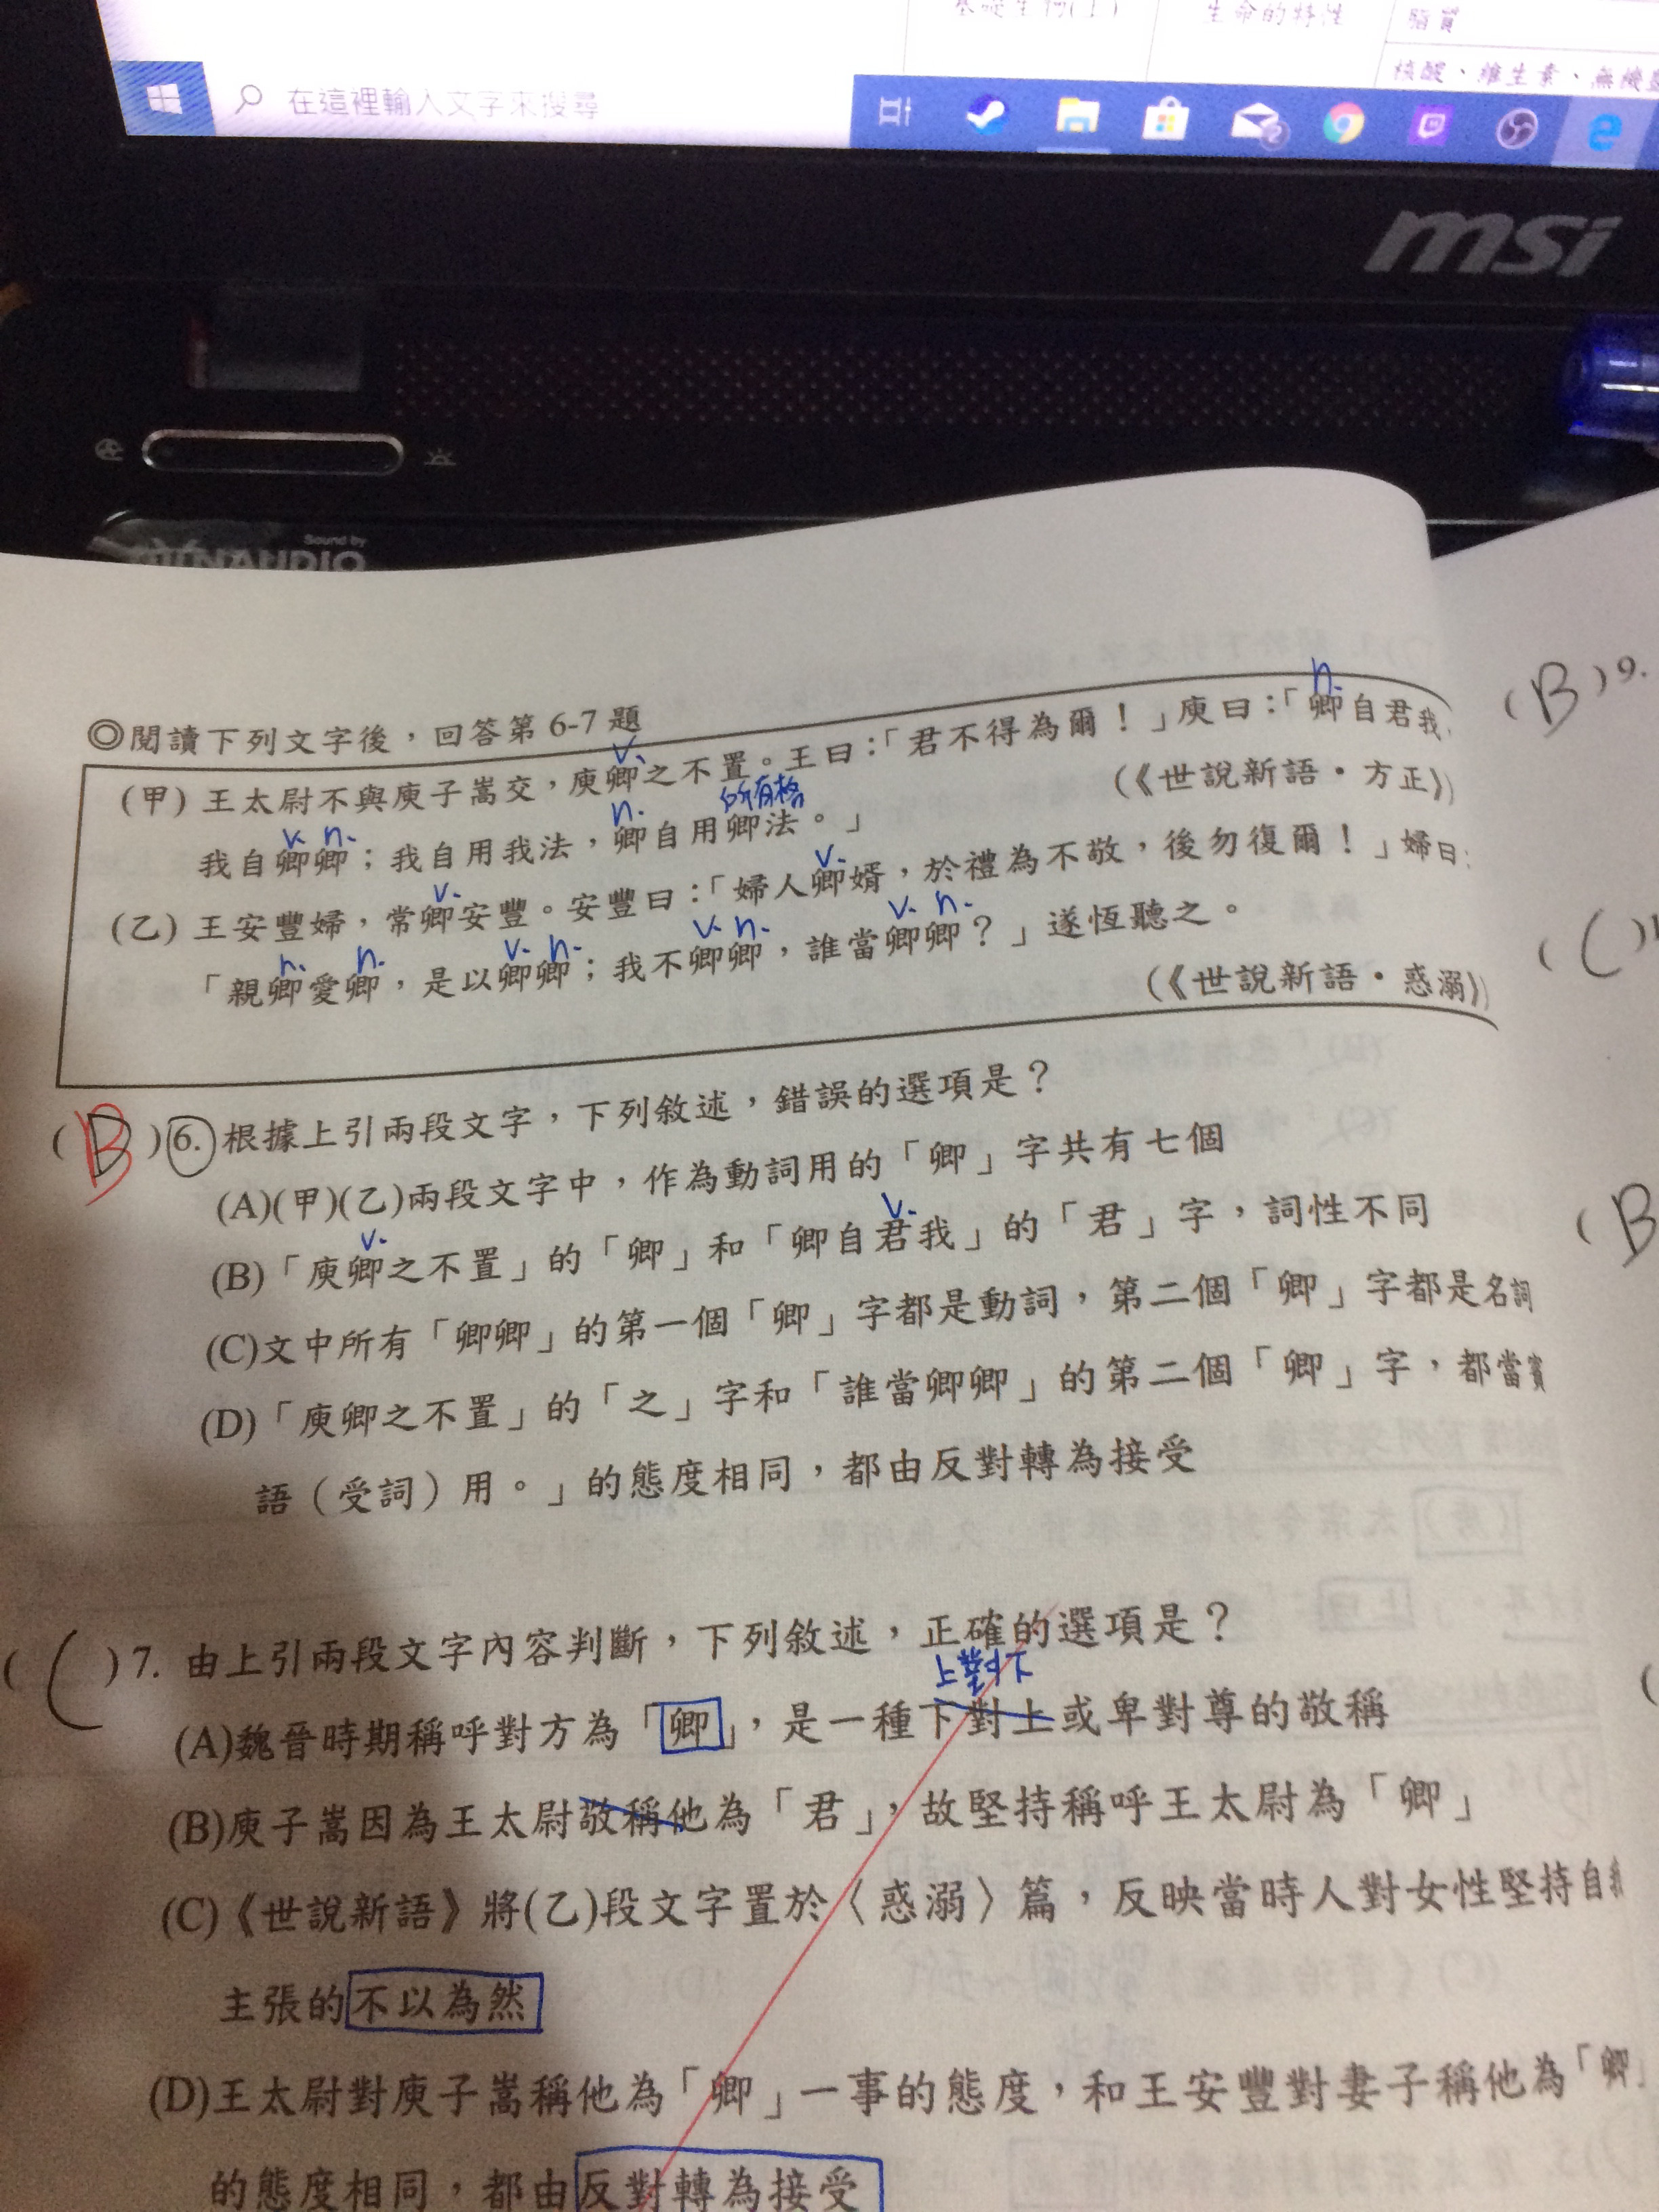 基礎生物(1) 生命的特性 脂質
核酸、維生素、無機
在這裡輸入文字來搜尋
msi
Sound by
DYNAUDIO
◎閱讀下列文字後，回答第 6-7 題
(甲) 王太尉不與庾子嵩交，庾卿之不置。王曰：「君不得為爾！」庾曰：「卿自君我，
v. n.
我自卿卿；我自用我法，卿自用卿法。」 (《世說新語·方正》)
v. n. n. 所有格
(乙) 王安豐婦，常卿安豐。安豐曰：「婦人卿婿，於禮為不敬，後勿復爾！」婦曰：
v. v.
「親卿愛卿，是以卿卿；我不卿卿，誰當卿卿？」遂恆聽之。
n. n. v. n. v. n. v. n.
(《世說新語·惑溺》)
(B) 6. 根據上引兩段文字，下列敘述，錯誤的選項是？
(A)(甲)(乙)兩段文字中，作為動詞用的「卿」字共有七個
(B)「庾卿之不置」的「卿」和「卿自君我」的「君」字，詞性不同
v. v.
(C)文中所有「卿卿」的第一個「卿」字都是動詞，第二個「卿」字都是名詞
(D)「庾卿之不置」的「之」字和「誰當卿卿」的第二個「卿」字，都當賓
語（受詞）用。」的態度相同，都由反對轉為接受
(C) 7. 由上引兩段文字內容判斷，下列敘述，正確的選項是？
上對下
(A)魏晉時期稱呼對方為「卿」，是一種下對上或卑對尊的敬稱
(B)庾子嵩因為王太尉敬稱他為「君」，故堅持稱呼王太尉為「卿」
(C)《世說新語》將(乙)段文字置於〈惑溺〉篇，反映當時人對女性堅持自我
主張的不以為然
(D)王太尉對庾子嵩稱他為「卿」一事的態度，和王安豐對妻子稱他為「卿」
的態度相同，都由反對轉為接受
(B) 9.
(C) 1
(B